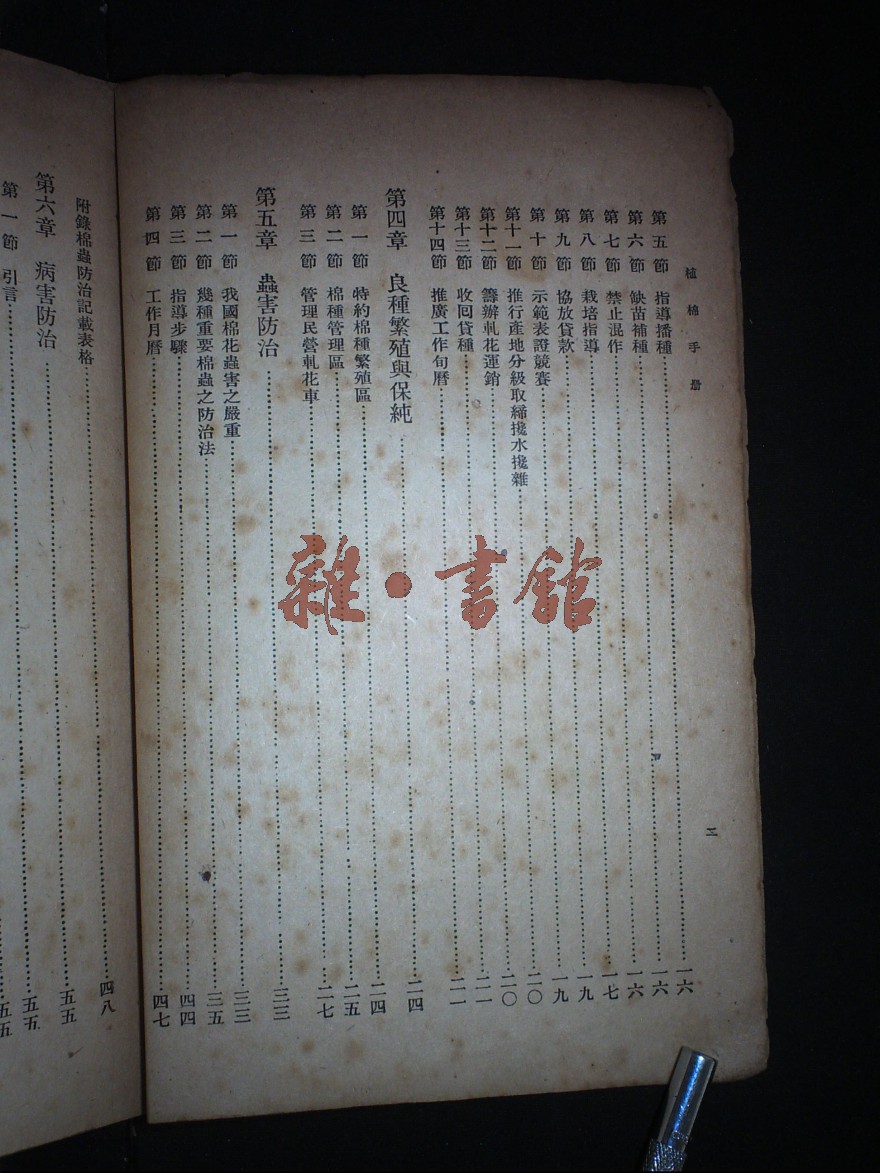 植棉手册
二
第五節 指導播種……一六
第六節 缺苗補種……一六
第七節 禁止混作……一七
第八節 栽培指導……一九
第九節 協放貸款……一九
第十節 示範表證競賽……二〇
第十一節 推行產地分級取締攙水攙雜……二〇
第十二節 籌辦軋花運銷……二一
第十三節 收回貸種
第十四節 推廣工作旬曆……二一
第四章 良種繁殖與保純……二四
第一節 特約棉種繁殖區……二四
第二節 棉種管理區……二五
第三節 管理民營軋花車……二七
第五章 蟲害防治……三三
第一節 我國棉花蟲害之嚴重……三三
第二節 幾種重要棉蟲之防治法……三五
第三節 指導步驟……四四
第四節 工作月曆……四七
附錄棉蟲防治記載表格……四八
第六章 病害防治……五五
第一節 引言……五五
五五
雜·書館